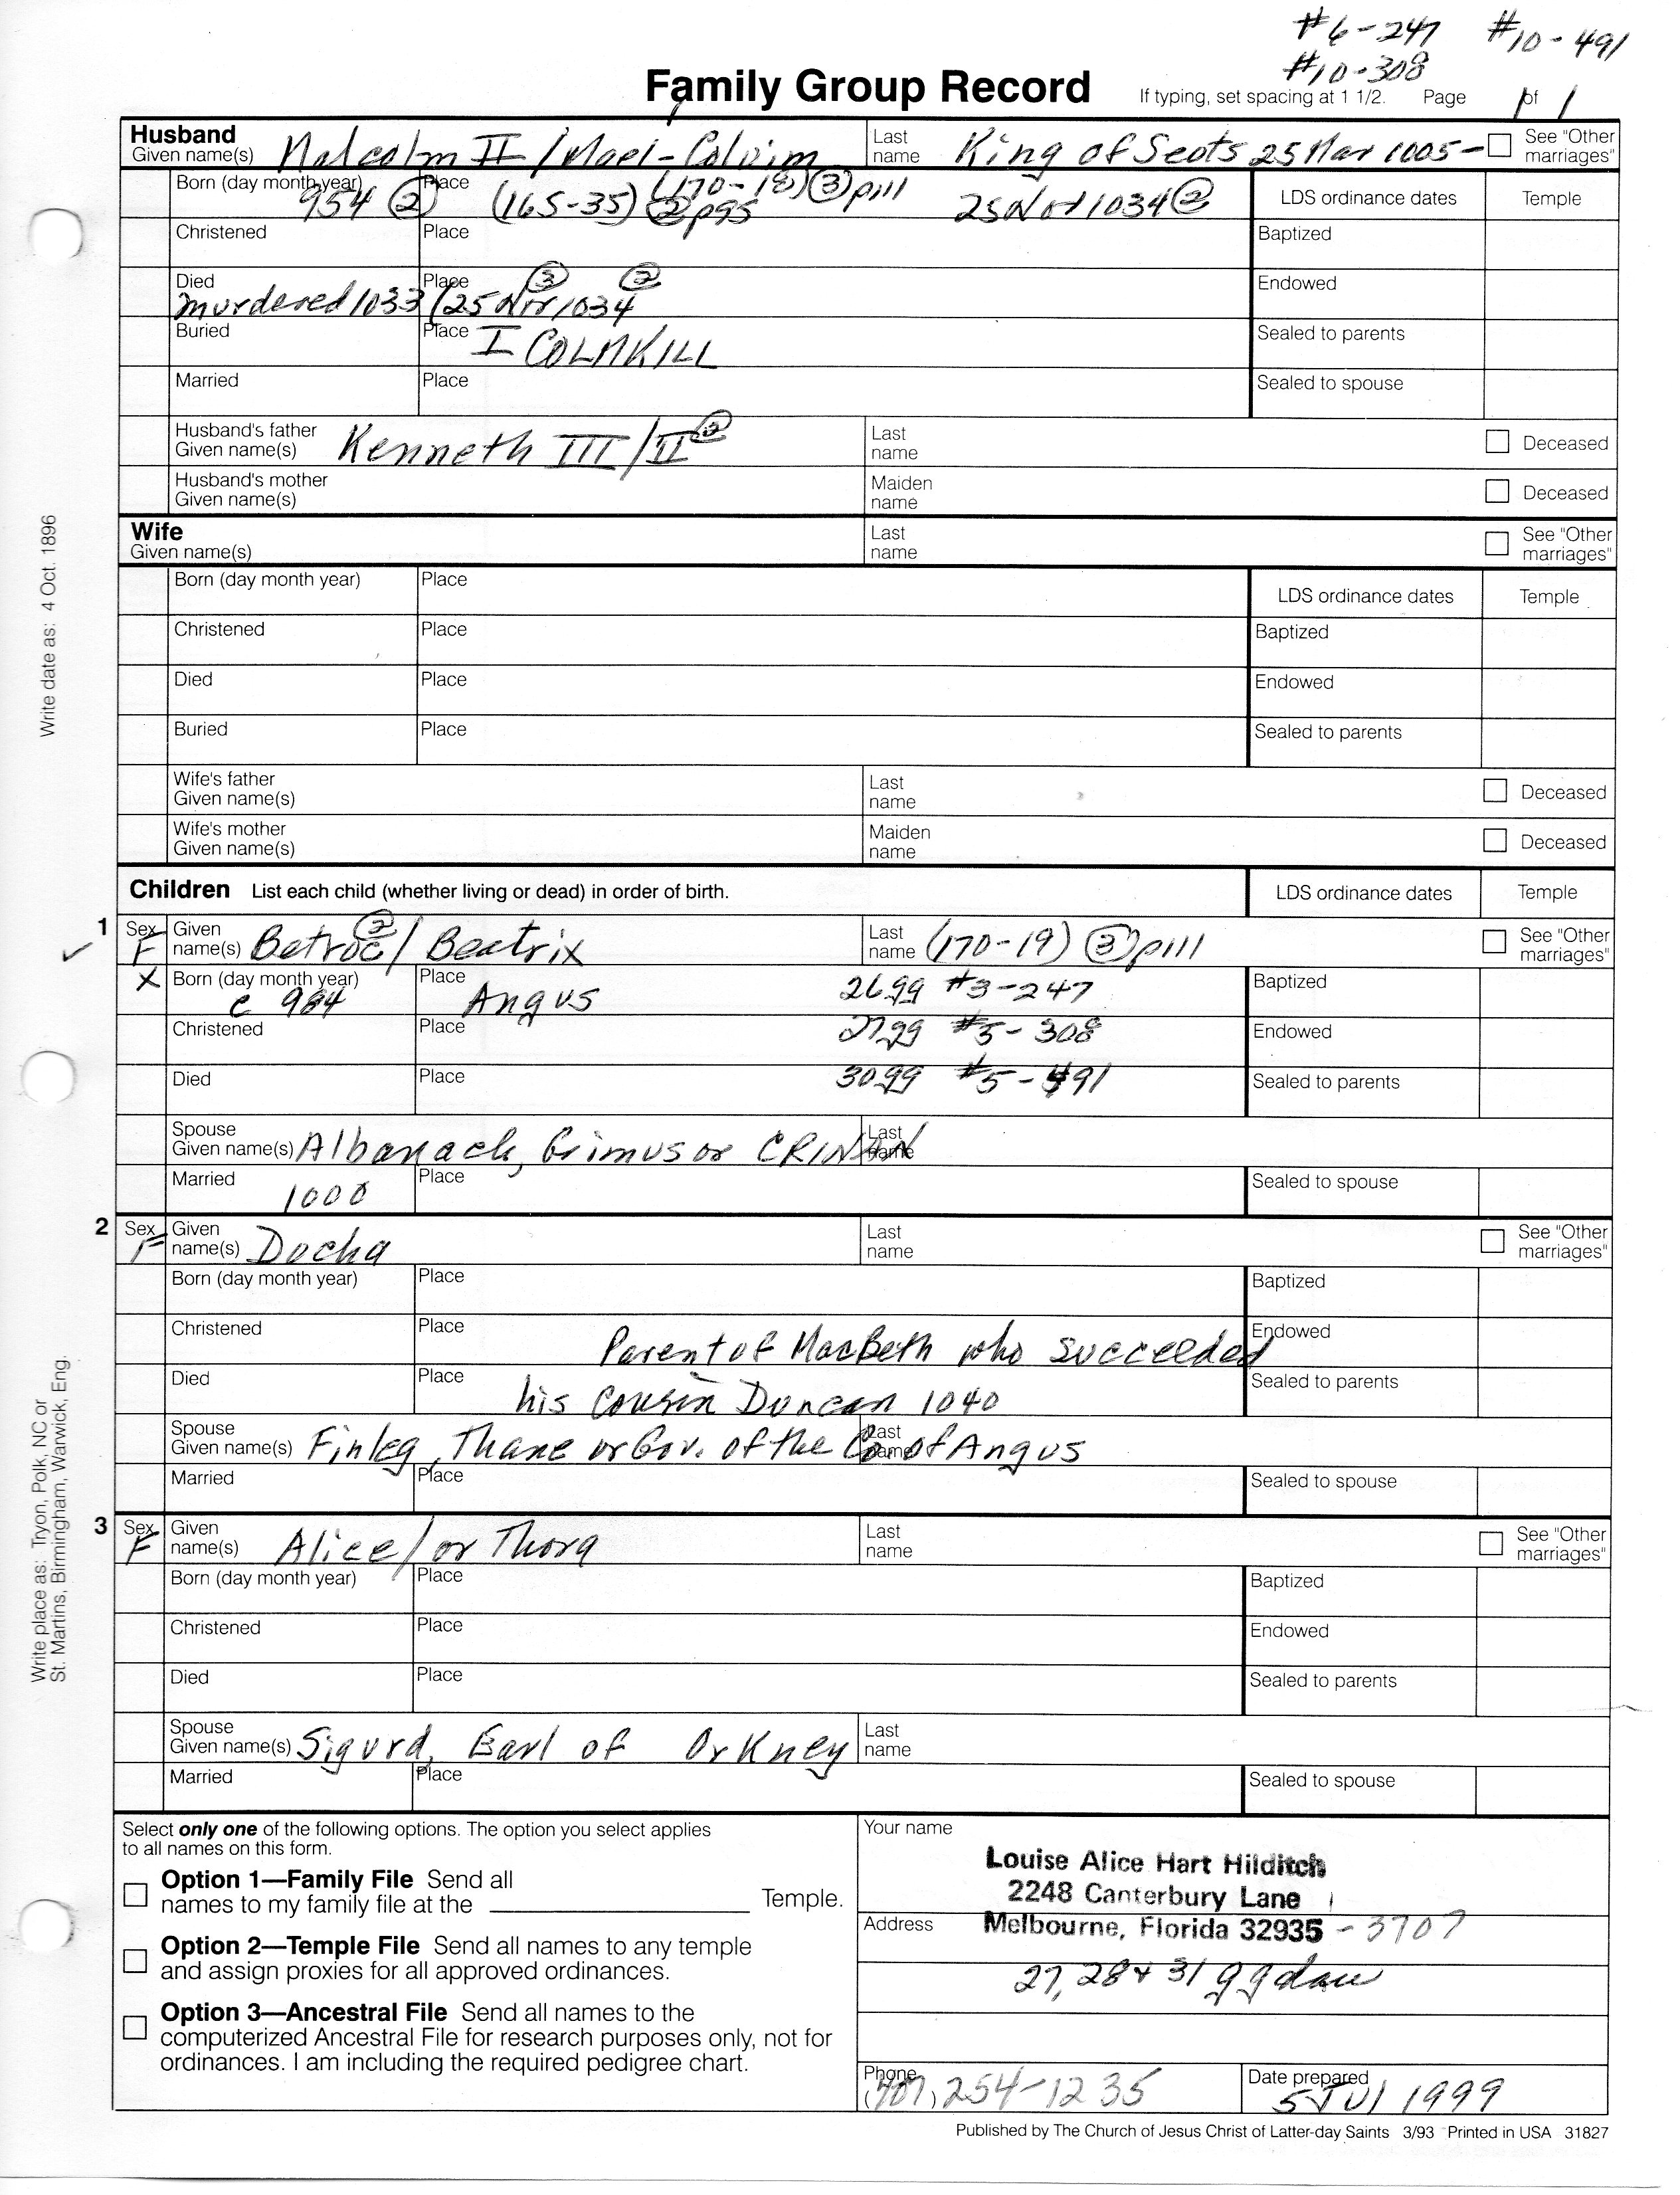 #6-247 #10-491
#10-308
Family Group Record If typing, set spacing at 1 1/2. Page 1 of 1
Husband
Given name(s) Malcolm II / Mael-Colvim Last name King of Scots 25 Mar 1005- See "Other marriages"
Born (day month year) 954 ② Place (165-35) ② p95 (170-18) ③ p111 25 Nov 1034 ② LDS ordinance dates Temple
Christened Place Baptized
Died murdered 1033 ③ / 25 Nov 1034 ② Place Endowed
Buried Place I COLMKILL Sealed to parents
Married Place Sealed to spouse
Husband's father
Given name(s) Kenneth III / II ② Last name Deceased
Husband's mother
Given name(s) Maiden name Deceased
Wife
Given name(s) Last name See "Other marriages"
Born (day month year) Place LDS ordinance dates Temple
Christened Place Baptized
Died Place Endowed
Buried Place Sealed to parents
Wife's father
Given name(s) Last name Deceased
Wife's mother
Given name(s) Maiden name Deceased
Children List each child (whether living or dead) in order of birth. LDS ordinance dates Temple
1 Sex F Given name(s) Betroc ② / Beatrix Last name (170-19) ③ p111 See "Other marriages"
X Born (day month year) c 984 Place Angus 26gg #3-247 Baptized
Christened Place 27gg #5-308 Endowed
Died Place 30gg #5-491 Sealed to parents
Spouse
Given name(s) Albanach, Grimus or CRINAN Last name
Married 1000 Place Sealed to spouse
2 Sex F Given name(s) Docha Last name See "Other marriages"
Born (day month year) Place Baptized
Christened Place Parent of MacBeth who succeeded Endowed
Died Place his cousin Duncan 1040 Sealed to parents
Spouse
Given name(s) Finleg, Thane or Gov. of the Co. of Angus Last name
Married Place Sealed to spouse
3 Sex F Given name(s) Alice / or Thora Last name See "Other marriages"
Born (day month year) Place Baptized
Christened Place Endowed
Died Place Sealed to parents
Spouse
Given name(s) Sigurd, Earl of Orkney Last name
Married Place Sealed to spouse
Select only one of the following options. The option you select applies
to all names on this form.
Option 1—Family File Send all
names to my family file at the Temple.
Option 2—Temple File Send all names to any temple
and assign proxies for all approved ordinances.
Option 3—Ancestral File Send all names to the
computerized Ancestral File for research purposes only, not for
ordinances. I am including the required pedigree chart.
Your name
Louise Alice Hart Hilditch
2248 Canterbury Lane
Address Melbourne, Florida 32935 - 3707
27, 28 & 31 gg dau
Phone (407) 254-1235 Date prepared 5 Jul 1999
Published by The Church of Jesus Christ of Latter-day Saints 3/93 Printed in USA 31827
Write date as: 4 Oct. 1896
Write place as: Tryon, Polk, NC or
St. Martins, Birmingham, Warwick, Eng.